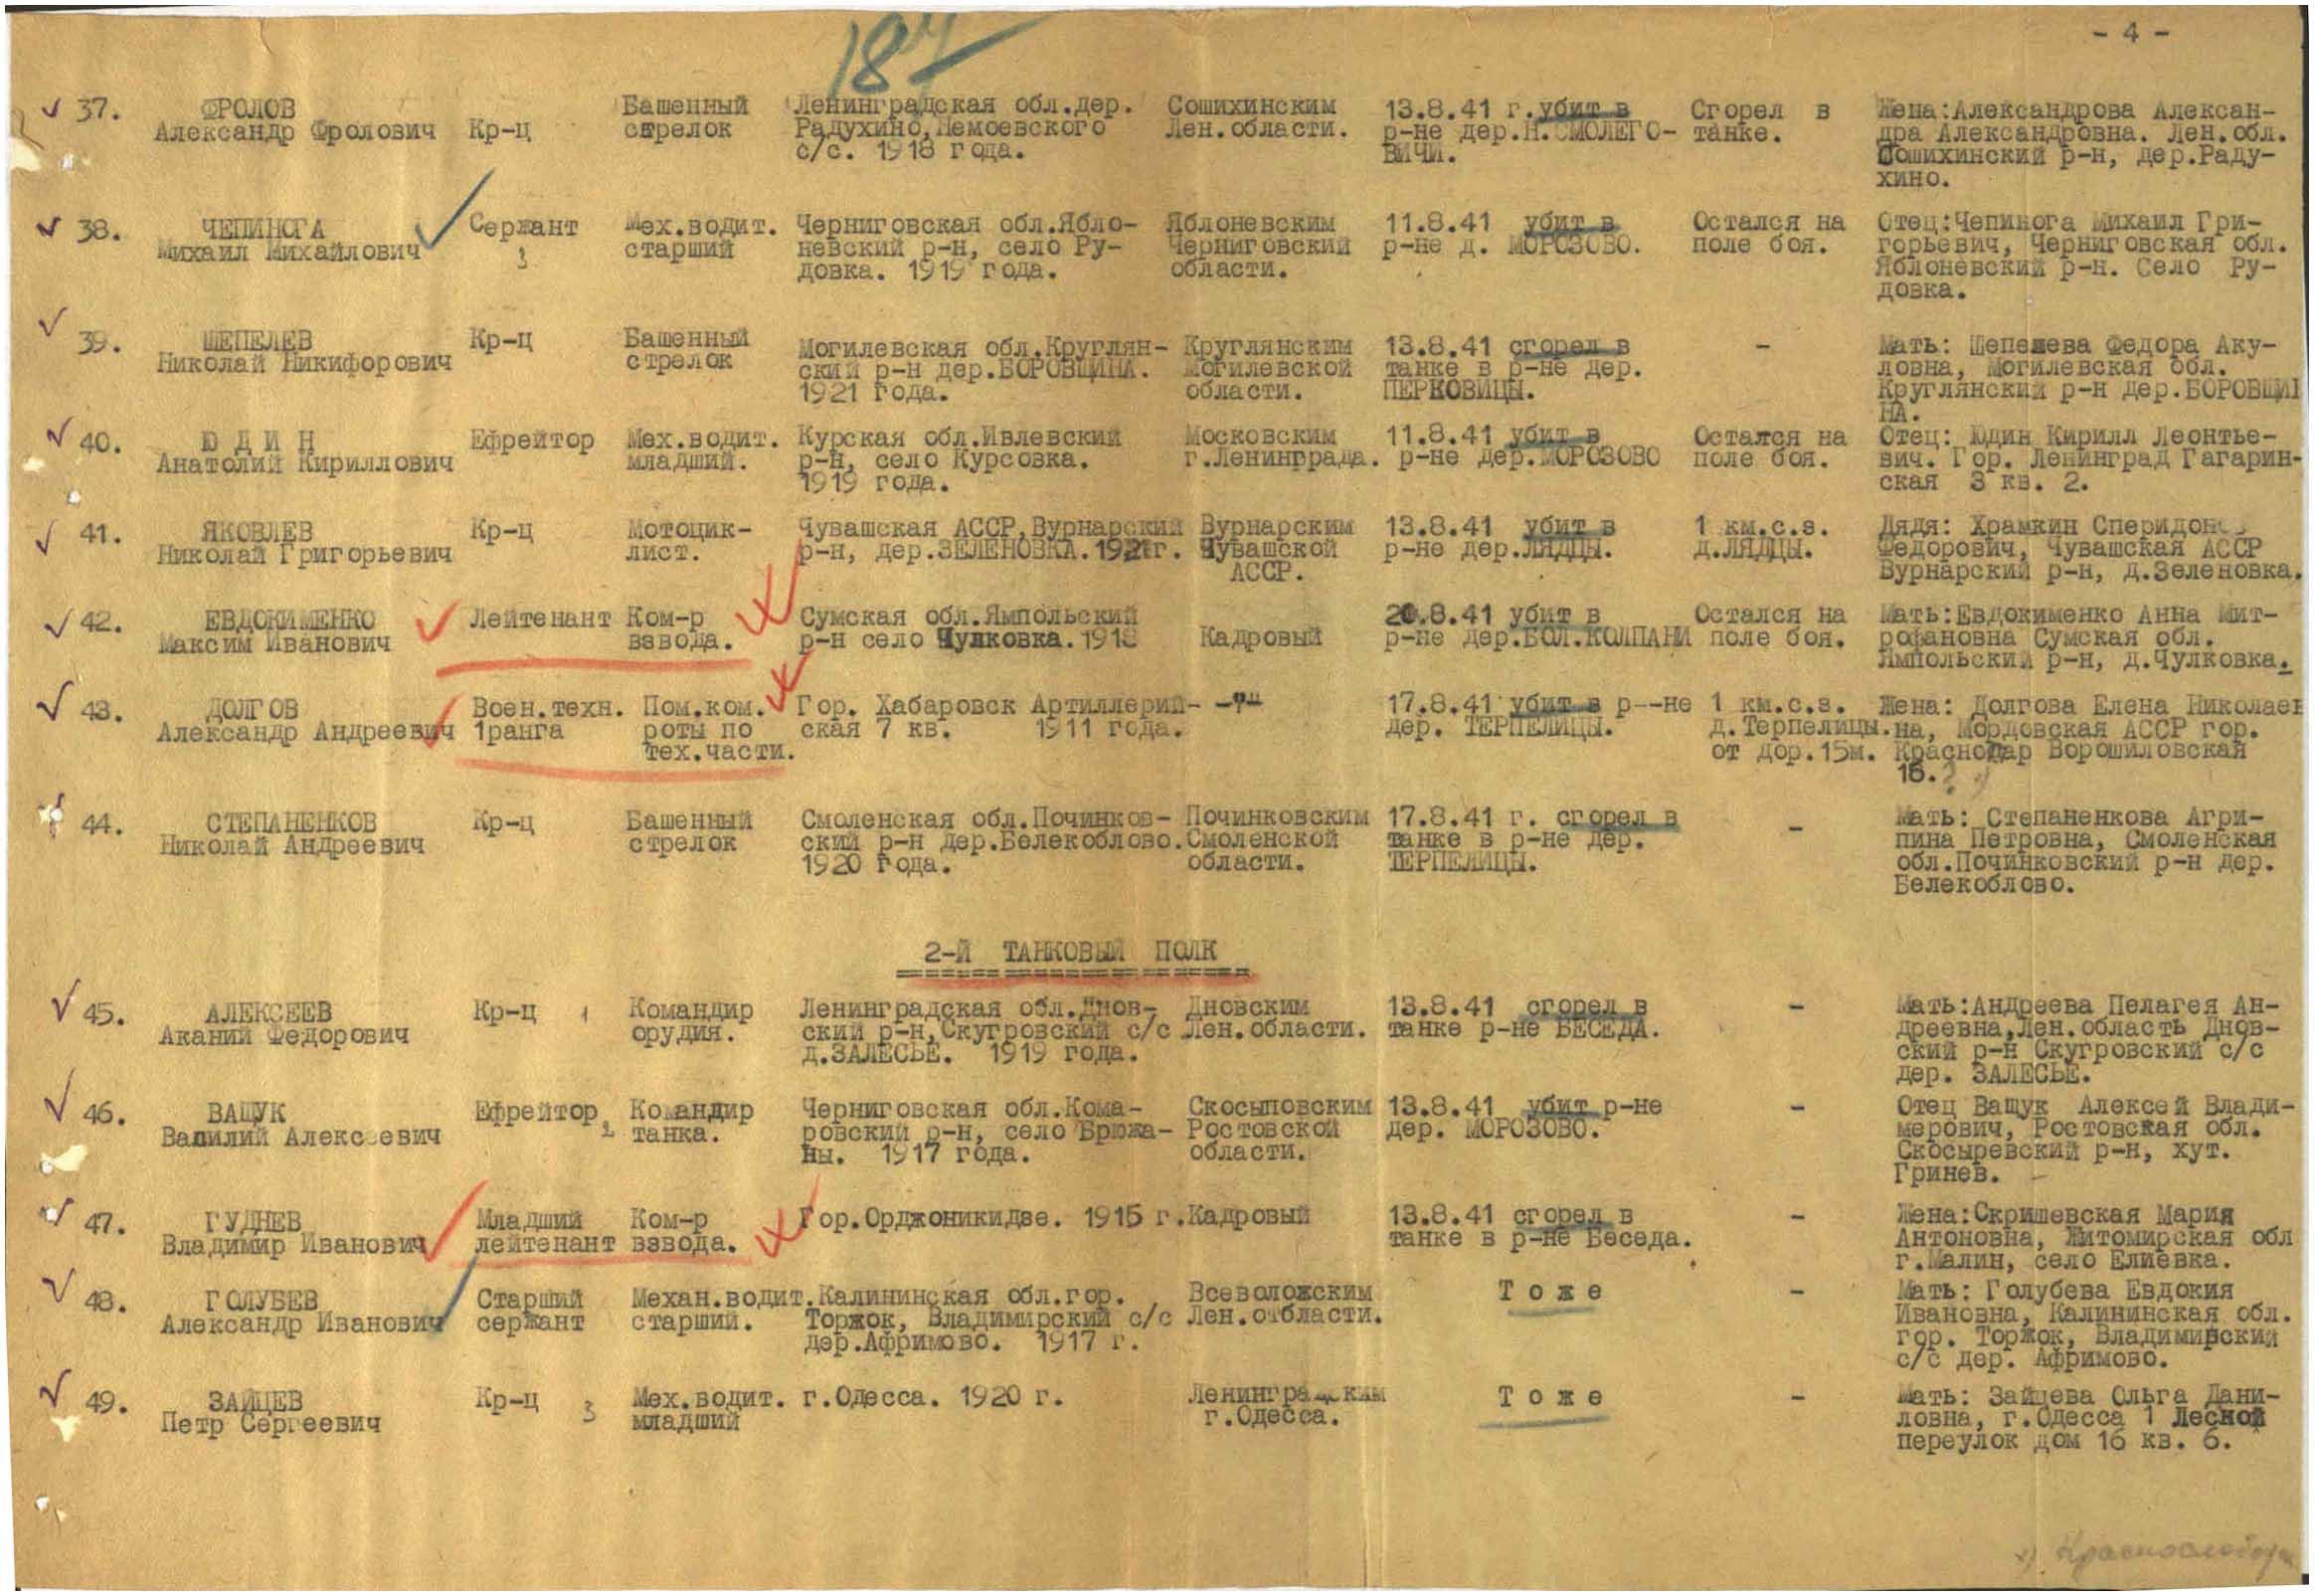 - 4 -
187
37. ФРОЛОВ Александр Фролович Кр-ц Башенный стрелок Ленинградская обл.дер. Радухино, Немоевского с/с. 1918 года. Сошихинским Лен.области. 13.8.41 г.убит в р-не дер.Н.СМОЛЕГО-ВИЧИ. Сгорел в танке. Жена:Александрова Алексан-дра Александровна. Лен.обл. Сошихинский р-н, дер.Раду-хино.
38. ЧЕПИНОГА Михаил Михайлович Сержант 3 Мех.водит. старший Черниговская обл.Ябло-невский р-н, село Ру-довка. 1919 года. Яблоневским Черниговский области. 11.8.41 убит в р-не д. МОРОЗОВО. Остался на поле боя. Отец:Чепинога Михаил Гри-горьевич, Черниговская обл. Яблоневский р-н. Село Ру-довка.
39. ШЕПЕЛЕВ Николай Никифорович Кр-ц Башенный стрелок Могилевская обл.Круглян-ский р-н дер.БОРОВЩИНА. 1921 года. Круглянским Могилевской области. 13.8.41 сгорел в танке в р-не дер. ПЕРКОВИЦЫ. - Мать: Шепелева Федора Аку-ловна, Могилевская обл. Круглянский р-н дер.БОРОВЩИ НА.
40. Ю Д И Н Анатолий Кириллович Ефрейтор Мех.водит. младший. Курская обл.Ивлевский р-н, село Курсовка. 1919 года. Московским г.Ленинграда. 11.8.41 убит в р-не дер.МОРОЗОВО Остался на поле боя. Отец: Юдин Кирилл Леонтье-вич. Гор. Ленинград Гагарин-ская 3 кв. 2.
41. ЯКОВЛЕВ Николай Григорьевич Кр-ц Мотоцик-лист. Чувашская АССР,Вурнарский р-н, дер.ЗЕЛЕНОВКА.1921г. Вурнарским Чувашской АССР. 13.8.41 убит в р-не дер.ЛЯДЦЫ. 1 км.с.з. д.ЛЯДЦЫ. Дядя: Храмкин Сперидон Федорович, Чувашская АССР Вурнарский р-н, д.Зеленовка.
42. ЕВДОКИМЕНКО Максим Иванович Лейтенант Ком-р взвода. Сумская обл.Ямпольский р-н село Чулковка.1918 Кадровый 20.8.41 убит в р-не дер.БОЛ.КОЛПАНИ Остался на поле боя. Мать:Евдокименко Анна Мит-рофановна Сумская обл. Ямпольский р-н, д.Чулковка.
43. ДОЛГОВ Александр Андреевич Воен.техн. 1ранга Пом.ком. роты по тех.части. Гор. Хабаровск Артиллерий-ская 7 кв. 1911 года. -"- 17.8.41 убит в р--не дер. ТЕРПЕЛИЦЫ. 1 км.с.з. д.Терпелицы. от дор.15м. Жена: Долгова Елена Николаев на, Мордовская АССР гор. Краснодар Ворошиловская 16.
44. СТЕПАНЕНКОВ Николай Андреевич Кр-ц Башенный стрелок Смоленская обл.Починков-ский р-н дер.Белекоблово. 1920 года. Починковским Смоленской области. 17.8.41 г. сгорел в танке в р-не дер. ТЕРПЕЛИЦЫ. - Мать: Степаненкова Агри-пина Петровна, Смоленская обл.Починковский р-н дер. Белекоблово.
2-Й ТАНКОВЫЙ ПОЛК
45. АЛЕКСЕЕВ Аканий Федорович Кр-ц 1 Командир орудия. Ленинградская обл.Днов-ский р-н,Скугровский с/с д.ЗАЛЕСЬЕ. 1919 года. Дновским Лен.области. 13.8.41 сгорел в танке р-не БЕСЕДА. - Мать:Андреева Пелагея Ан-дреевна,Лен.область Днов-ский р-н Скугровский с/с дер. ЗАЛЕСЬЕ.
46. ВАЩУК Василий Алексеевич Ефрейтор 2 Командир танка. Черниговская обл.Кома-ровский р-н, село Брюжа-ны. 1917 года. Скосыповским Ростовской области. 13.8.41 убит р-не дер. МОРОЗОВО. - Отец Ващук Алексей Влади-мерович, Ростовская обл. Скосыревский р-н, хут. Гринев.
47. ГУДНЕВ Владимир Иванович Младший лейтенант Ком-р взвода. Гор.Орджоникидве. 1915 г. Кадровый 13.8.41 сгорел в танке в р-не Беседа. - Жена:Скришевская Мария Антоновна, Житомирская обл г.Малин, село Елиевка.
48. ГОЛУБЕВ Александр Иванович Старший сержант Механ.водит. старший. Калининская обл.гор. Торжок, Владимирский с/с дер.Афримово. 1917 г. Всеволожским Лен.отбласти. Т о ж е - Мать: Голубева Евдокия Ивановна, Калининская обл. гор. Торжок, Владимирский с/с дер. Афримово.
49. ЗАЙЦЕВ Петр Сергеевич Кр-ц 3 Мех.водит. младший г.Одесса. 1920 г. Ленинградским г.Одесса. Т о ж е - Мать: Зайцева Ольга Дани-ловна, г.Одесса 1 Лесной переулок дом 16 кв. 6.